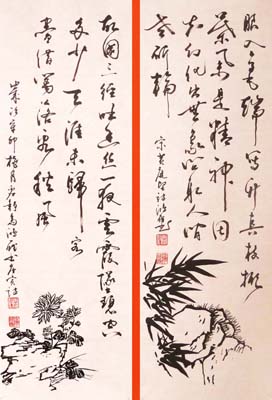 眼入毫端寫竹真枝掀
葉舉是精神因
知幻化出無象問取人間
老斫輪
宋黃庭堅詩
故園三徑吐幽叢一夜玄霜墜碧空
多少天涯未歸客
盡借籬落看秋風
歲次辛卯